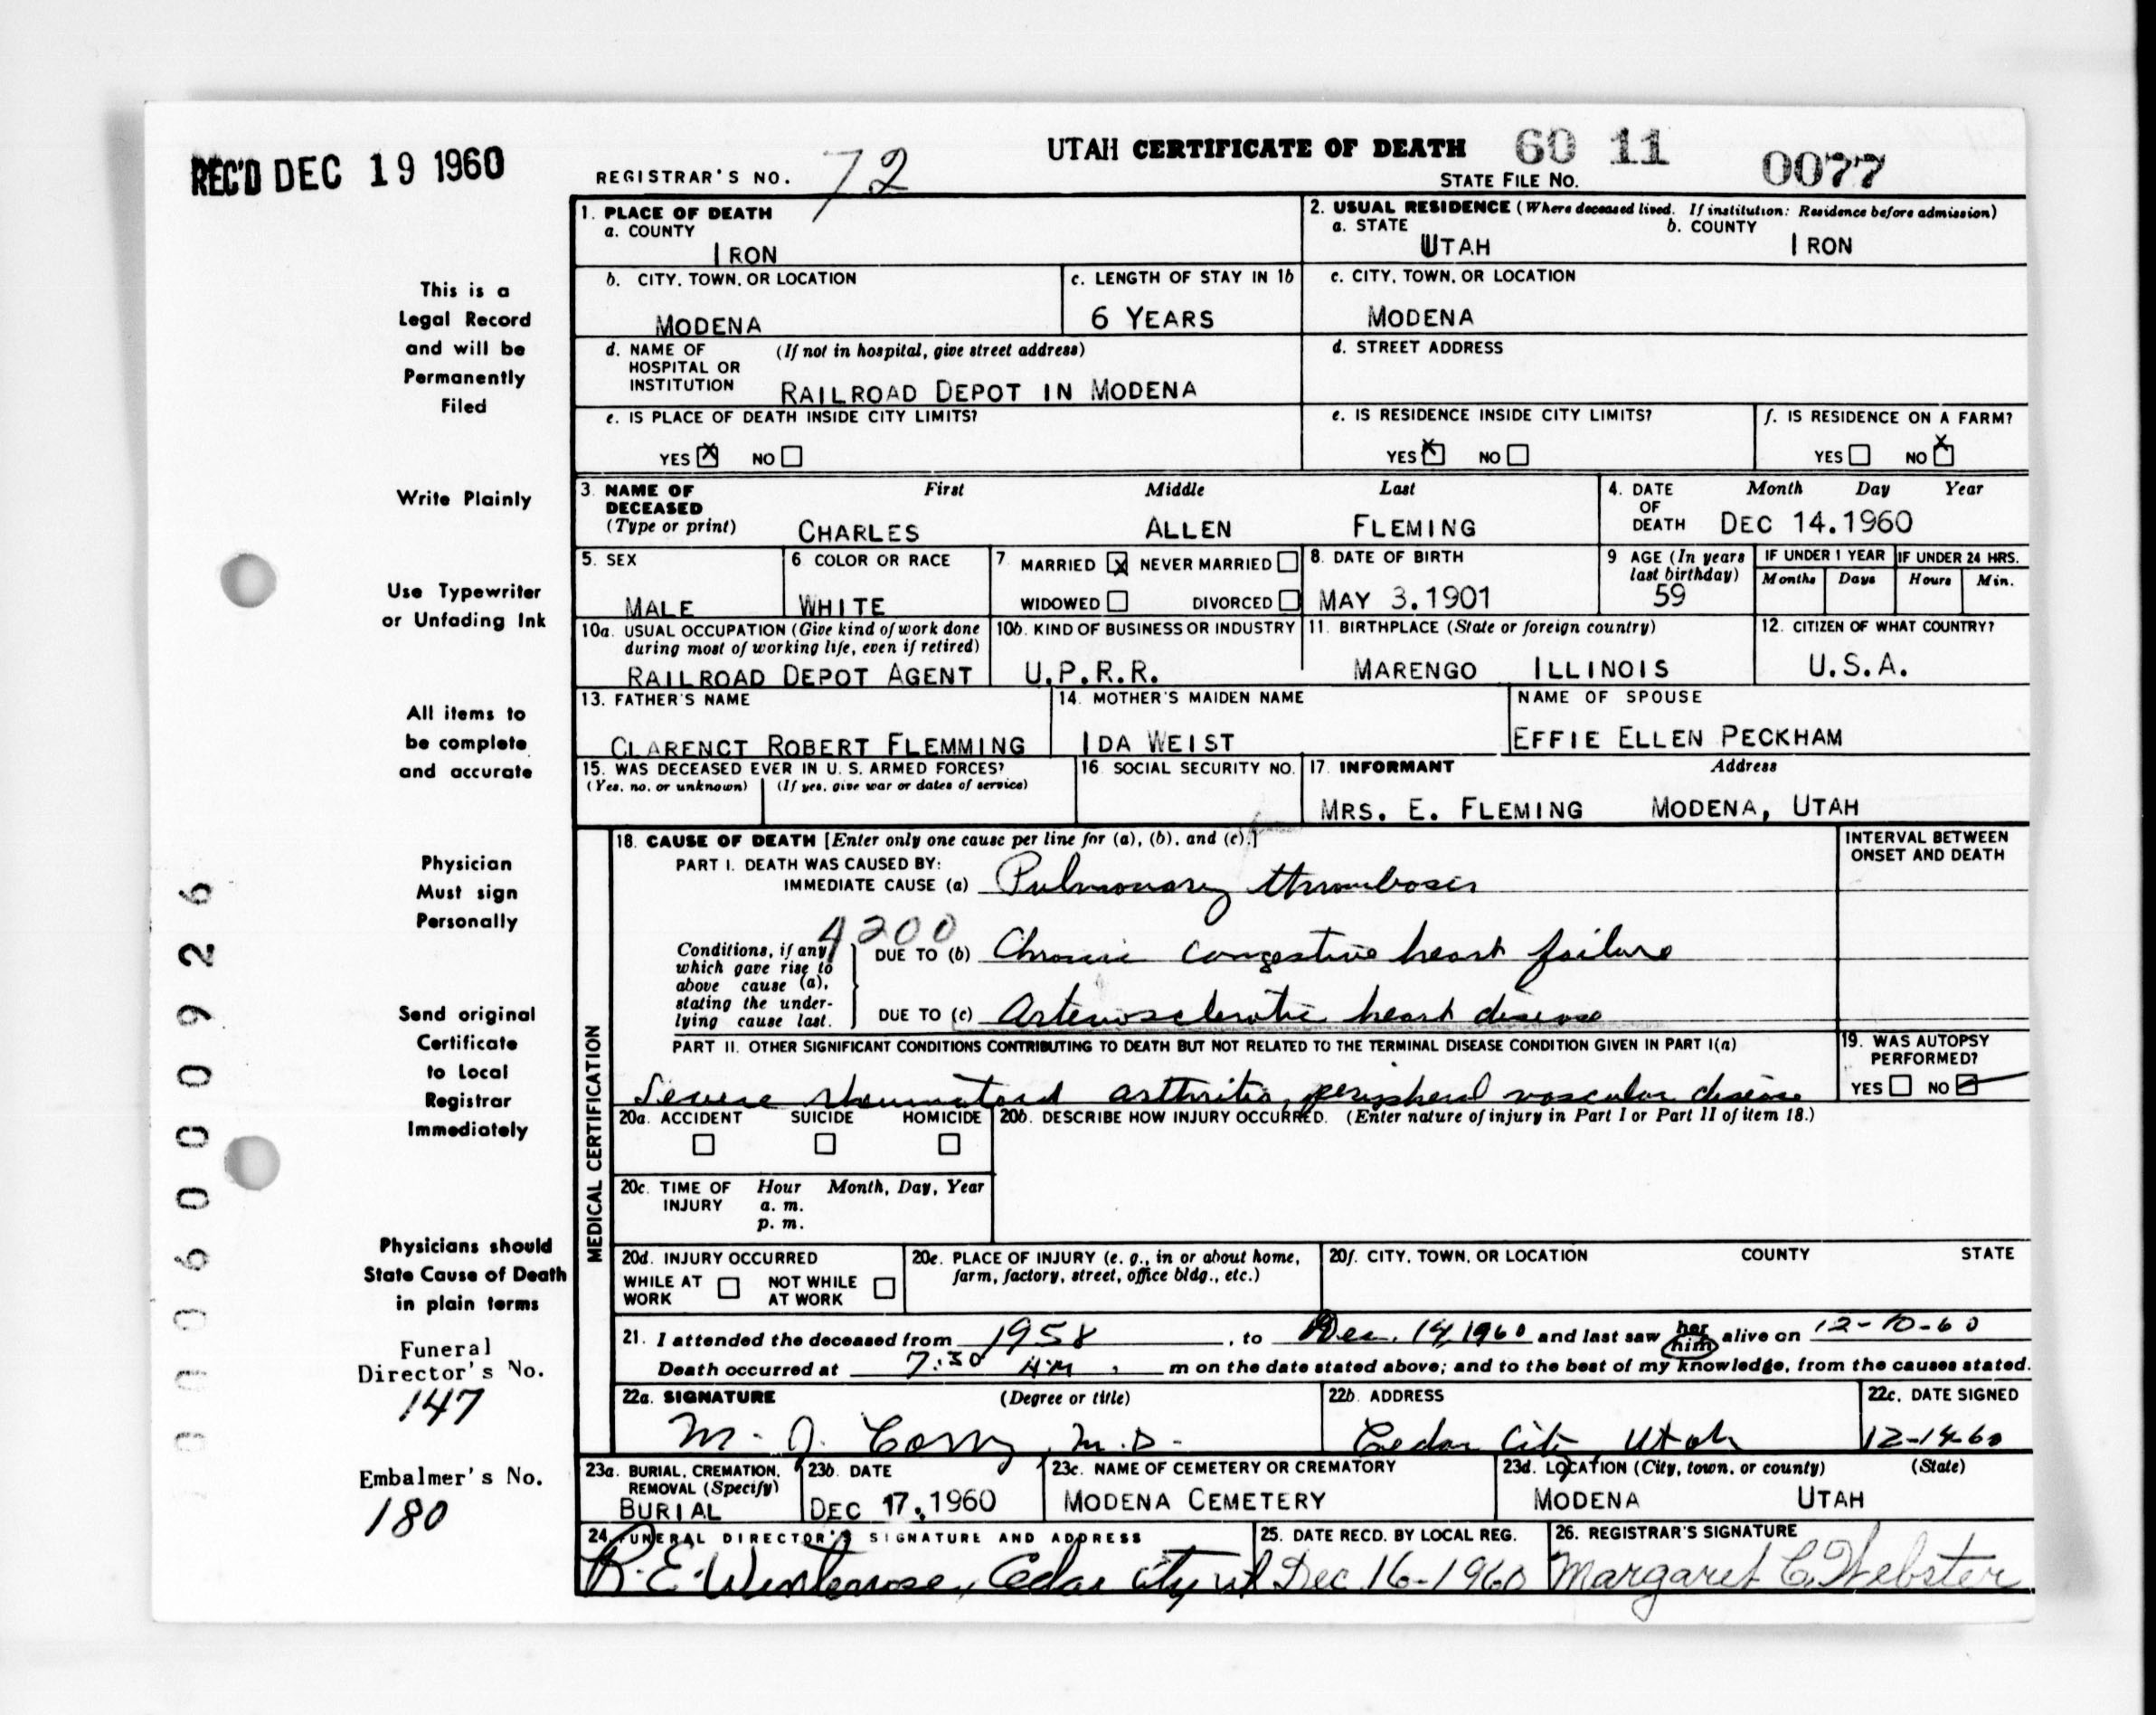 REC'D DEC 19 1960
REGISTRAR'S NO. 72
UTAH CERTIFICATE OF DEATH 60 11 0077
STATE FILE NO.
1. PLACE OF DEATH
a. COUNTY
IRON
2. USUAL RESIDENCE (Where deceased lived. If institution: Residence before admission)
a. STATE b. COUNTY
UTAH IRON
b. CITY, TOWN, OR LOCATION
MODENA
c. LENGTH OF STAY IN 1b
6 YEARS
c. CITY, TOWN, OR LOCATION
MODENA
d. NAME OF HOSPITAL OR INSTITUTION (If not in hospital, give street address)
RAILROAD DEPOT IN MODENA
d. STREET ADDRESS
e. IS PLACE OF DEATH INSIDE CITY LIMITS?
YES X NO
e. IS RESIDENCE INSIDE CITY LIMITS?
YES X NO
f. IS RESIDENCE ON A FARM?
YES NO X
3. NAME OF DECEASED (Type or print)
First Middle Last
CHARLES ALLEN FLEMING
4. DATE OF DEATH
Month Day Year
DEC 14.1960
5. SEX
MALE
6 COLOR OR RACE
WHITE
7. MARRIED X NEVER MARRIED
WIDOWED DIVORCED
8. DATE OF BIRTH
MAY 3.1901
9 AGE (In years last birthday)
59
IF UNDER 1 YEAR
Months Days
IF UNDER 24 HRS.
Hours Min.
10a. USUAL OCCUPATION (Give kind of work done during most of working life, even if retired)
RAILROAD DEPOT AGENT
10b. KIND OF BUSINESS OR INDUSTRY
U.P.R.R.
11. BIRTHPLACE (State or foreign country)
MARENGO ILLINOIS
12. CITIZEN OF WHAT COUNTRY?
U.S.A.
13. FATHER'S NAME
CLARENCT ROBERT FLEMMING
14. MOTHER'S MAIDEN NAME
IDA WEIST
NAME OF SPOUSE
EFFIE ELLEN PECKHAM
15. WAS DECEASED EVER IN U. S. ARMED FORCES?
(Yes, no, or unknown) (If yes, give war or dates of service)
16. SOCIAL SECURITY NO.
17. INFORMANT Address
MRS. E. FLEMING MODENA, UTAH
MEDICAL CERTIFICATION
18. CAUSE OF DEATH [Enter only one cause per line for (a), (b), and (c).]
INTERVAL BETWEEN ONSET AND DEATH
PART I. DEATH WAS CAUSED BY:
IMMEDIATE CAUSE (a) Pulmonary thrombosis
4200
Conditions, if any, which gave rise to above cause (a), stating the underlying cause last.
DUE TO (b) Chronic congestive heart failure
DUE TO (c) Arteriosclerotic heart disease
PART II. OTHER SIGNIFICANT CONDITIONS CONTRIBUTING TO DEATH BUT NOT RELATED TO THE TERMINAL DISEASE CONDITION GIVEN IN PART I(a)
Severe rheumatoid arthritis, peripheral vascular disease
19. WAS AUTOPSY PERFORMED?
YES NO
20a. ACCIDENT SUICIDE HOMICIDE
20b. DESCRIBE HOW INJURY OCCURRED. (Enter nature of injury in Part I or Part II of item 18.)
20c. TIME OF INJURY Hour Month, Day, Year
a. m.
p. m.
20d. INJURY OCCURRED
WHILE AT WORK NOT WHILE AT WORK
20e. PLACE OF INJURY (e. g., in or about home, farm, factory, street, office bldg., etc.)
20f. CITY, TOWN, OR LOCATION COUNTY STATE
21. I attended the deceased from 1958, to Dec. 14, 1960 and last saw her him alive on 12-10-60
Death occurred at 7:30 AM, m on the date stated above; and to the best of my knowledge, from the causes stated.
22a. SIGNATURE (Degree or title)
M. J. M.D.
22b. ADDRESS
Cedar City, Utah
22c. DATE SIGNED
12-14-60
23a. BURIAL, CREMATION, REMOVAL (Specify)
BURIAL
23b. DATE
DEC 17.1960
23c. NAME OF CEMETERY OR CREMATORY
MODENA CEMETERY
23d. LOCATION (City, town, or county) (State)
MODENA UTAH
24. FUNERAL DIRECTOR'S SIGNATURE AND ADDRESS
R.E. Cedar City Ut
25. DATE RECD. BY LOCAL REG.
Dec 16-1960
26. REGISTRAR'S SIGNATURE
Margaret C. Webster
This is a
Legal Record
and will be
Permanently
Filed
Write Plainly
Use Typewriter
or Unfading Ink
All items to
be complete
and accurate
Physician
Must sign
Personally
Send original
Certificate
to Local
Registrar
Immediately
Physicians should
State Cause of Death
in plain terms
Funeral
Director's No.
147
Embalmer's No.
180
000600926